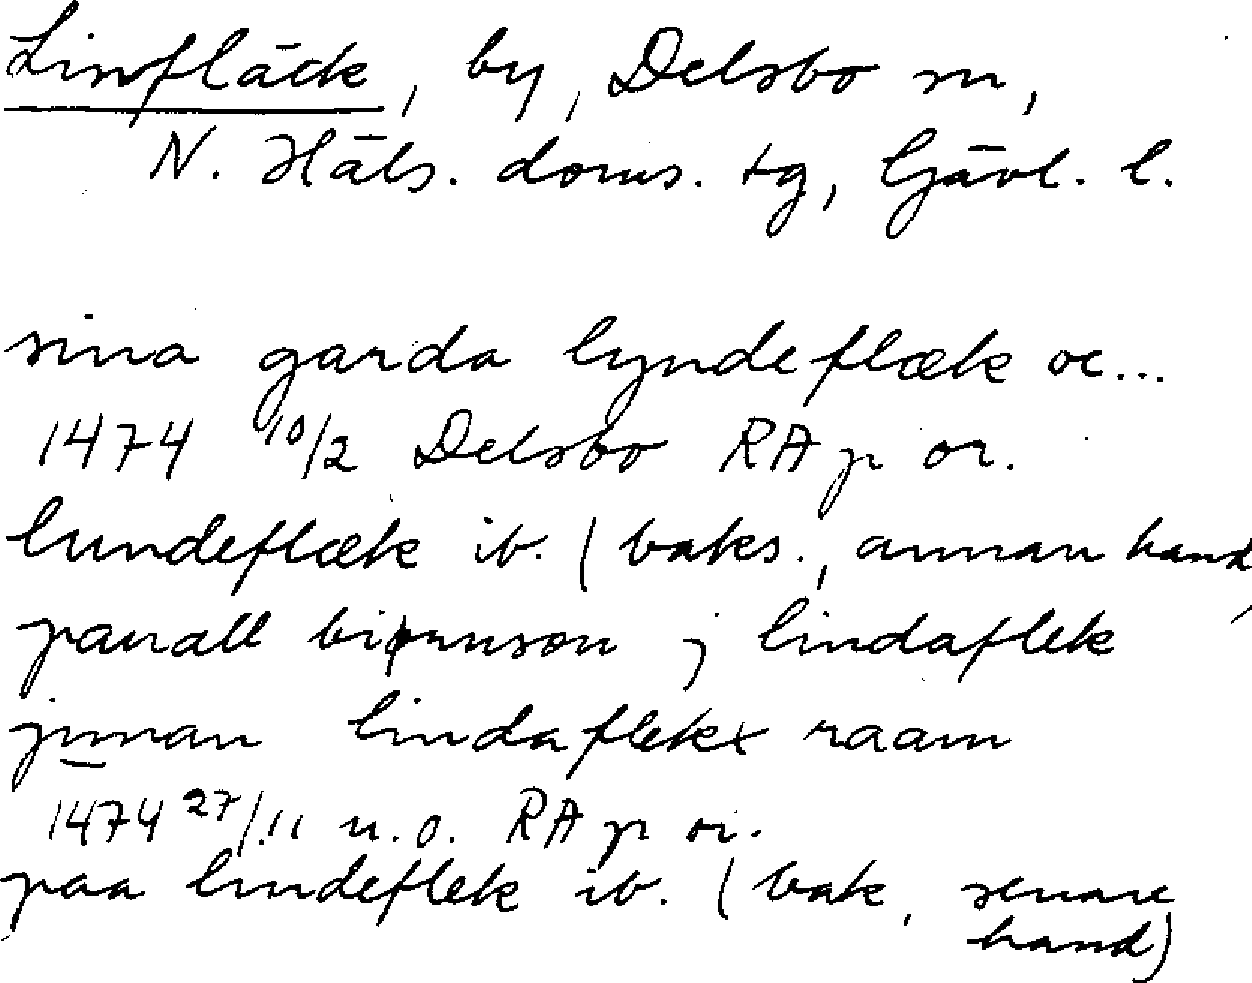 Linfläck, by, Delsbo sn,
N. Häls. doms. tg, Gävl. l.
sina garda lyndeflæk oc...
1474 10/2 Delsbo RA p or.
lundeflæk ib. (baks., annan hand)
pauall biørnson j lindaflek
jnnan lindaflekx raam
1474 27/11 u.o. RA p or.
paa lindeflek ib. (bak, senare
hand)